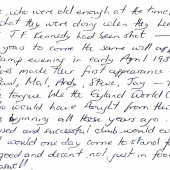 , who were old enough at the time,
what they were doing when they hea
J.F. Kennedy had been shot —
years to come the same will app
damp evening in early April 193
ves made their first appearance
Paul, Mal, Andy, Steve, Jay —
tongue like the England World C
o would have thought from that
beginning all those years ago
sed and successful club would ev
would one day come to stand f
good and decent, not just in foo